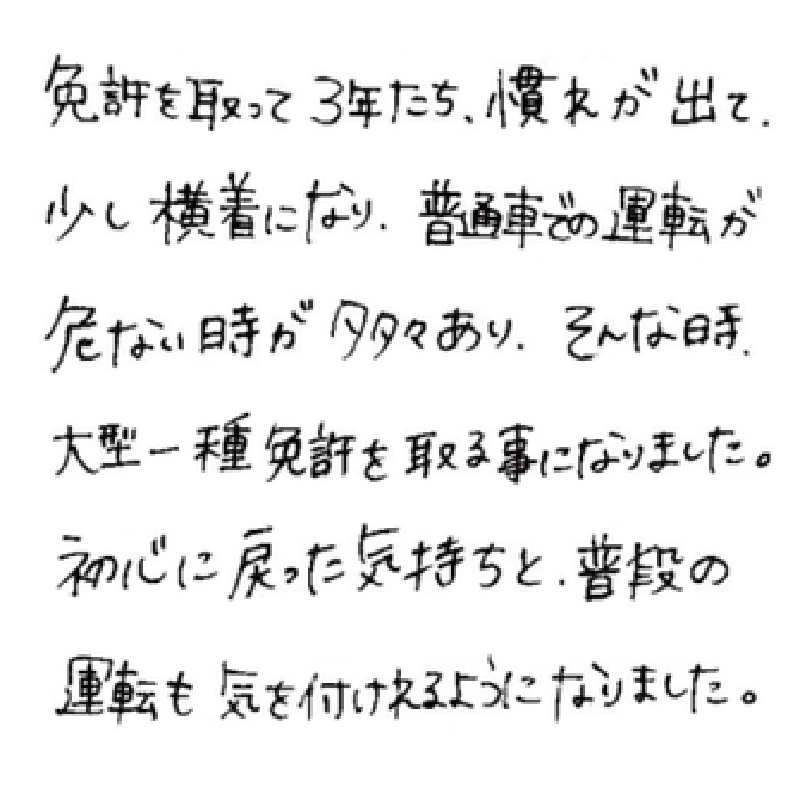 免許を取って3年たち、慣れが出て、
少し横着になり、普通車での運転が
危ない時が多々あり、そんな時、
大型一種免許を取る事になりました。
初心に戻った気持ちと、普段の
運転も気を付けれるようになりました。